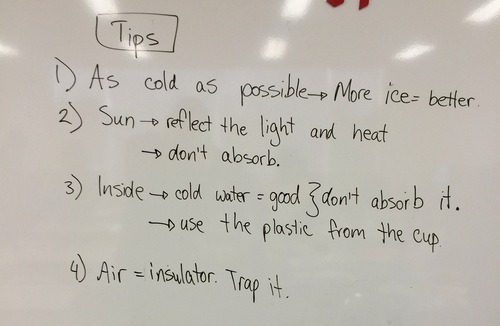 Tips
1) As cold as possible → More ice = better.
2) Sun → reflect the light and heat
→ don't absorb.
3) Inside → cold water = good } don't absorb it.
→ use the plastic from the cup.
4) Air = insulator. Trap it.